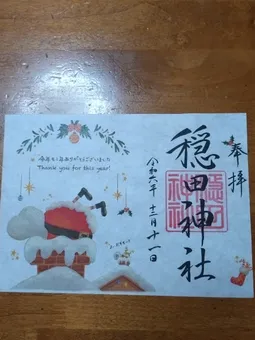 奉拝
穏田神社
令和六年十二月十一日
今年も1年ありがとうございました
Thank you for this year!